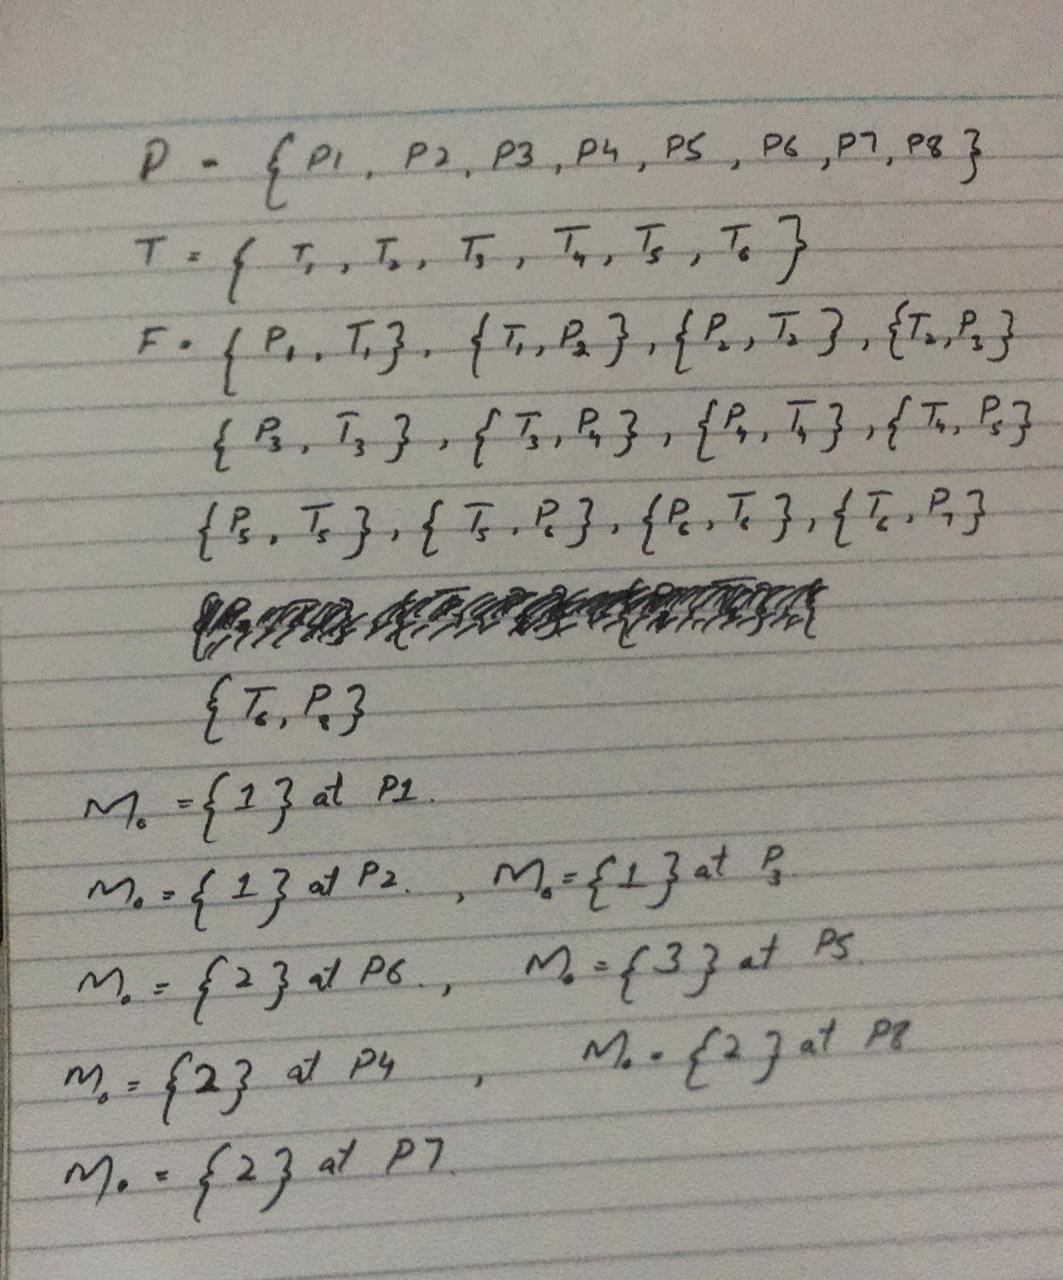 P = { P1, P2, P3, P4, P5, P6, P7, P8 }
T = { T₁, T₂, T₃, T₄, T₅, T₆ }
F = { P₁, T₁}, {T₁, P₂}, {P₂, T₂}, {T₂, P₃}
{ P₃, T₃ }, { T₃, P₄}, {P₄, T₄}, {T₄, P₅}
{P₅, T₅}, { T₅, P₆}, {P₆, T₆}, {T₆, P₇}
{ T₆, P₈}
M₀ = { 1 } at P1.
M₀ = { 1 } at P2. , M₀ = { 1 } at P₃
M₀ = { 2 } at P6. , M₀ = { 3 } at P5.
M₀ = { 2 } at P4 , M₀ = { 2 } at P8
M₀ = { 2 } at P7.